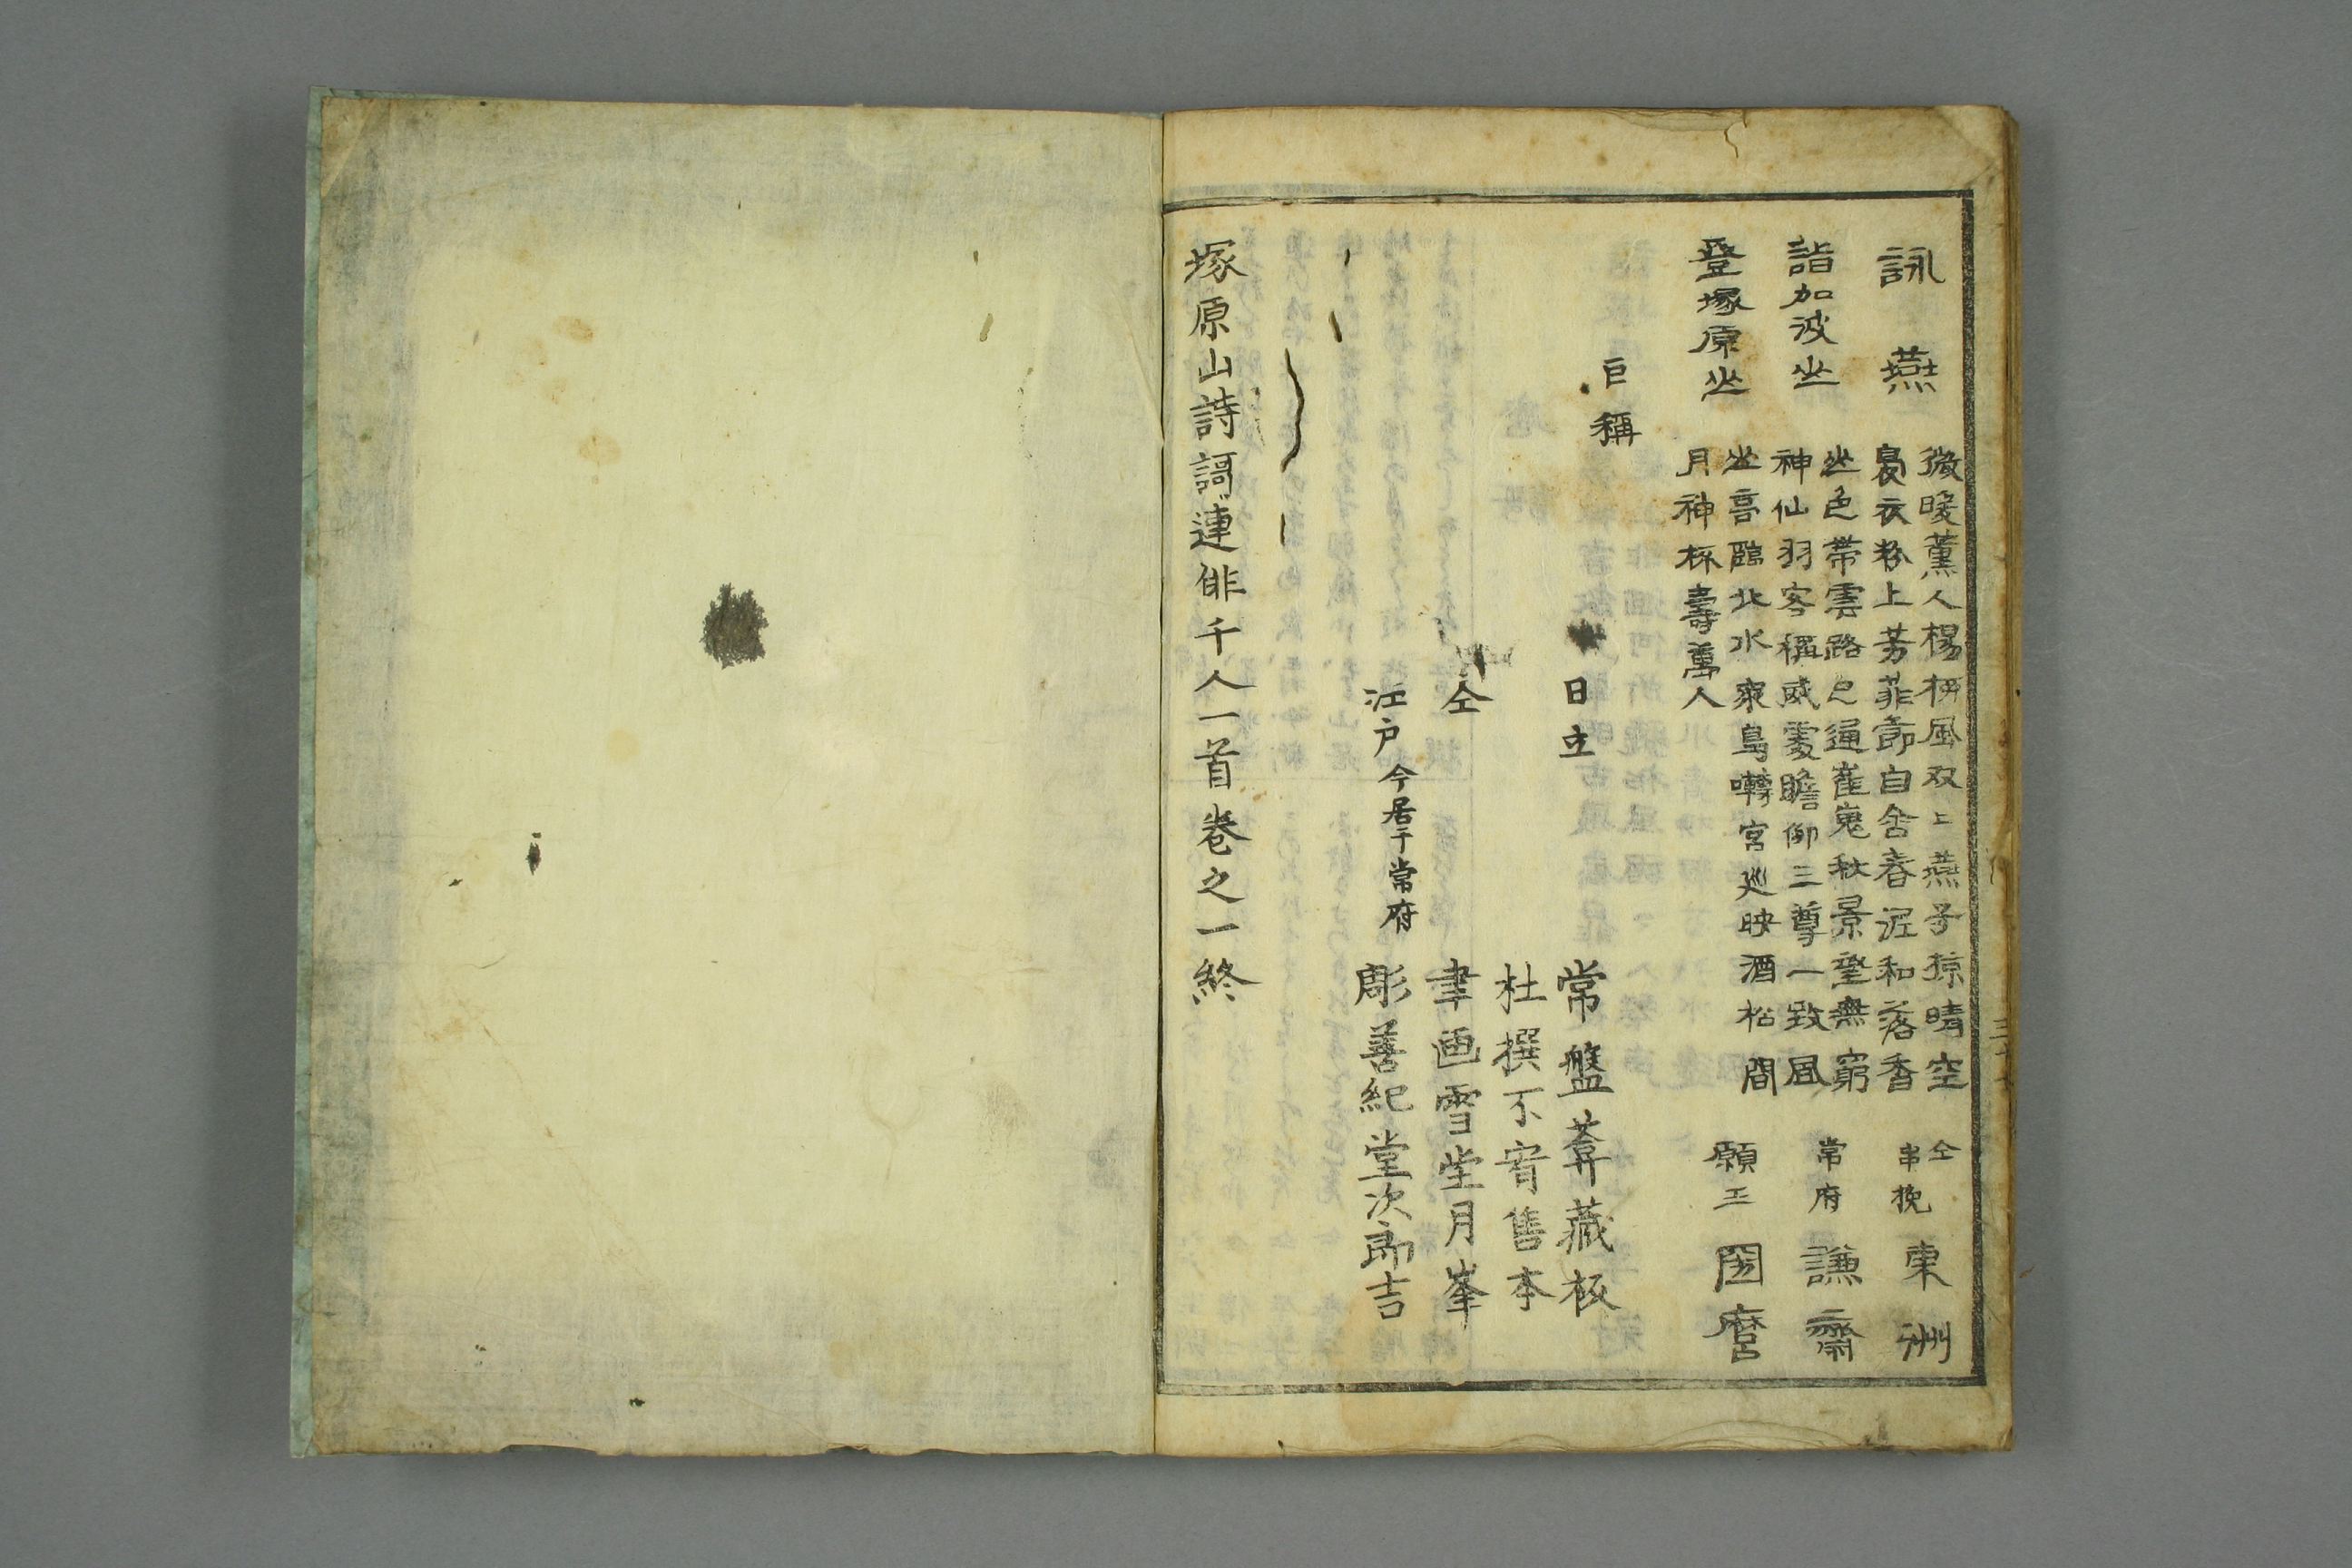 詠燕
微暖薰人楊柳風双〻燕子掠晴空
烏衣粉上芳菲節自舍春泥和落香
仝
串挽 東洲
詣加波山
山色帯雲路已通崔嵬秋景望無窮
神仙羽客稱威霊瞻仰三尊一致風
常府 謙齋
登塚原山
山高臨北水衆鳥囀宮巡映酒松間
月神杯壽萬人
願正
巨稱
日立 常盤葊藏板
杜撰不寄售本
仝 聿画雪堂月峯
江戸今居于常府 彫善紀堂次郎吉
塚原山詩謌連俳千人一首巻之一終